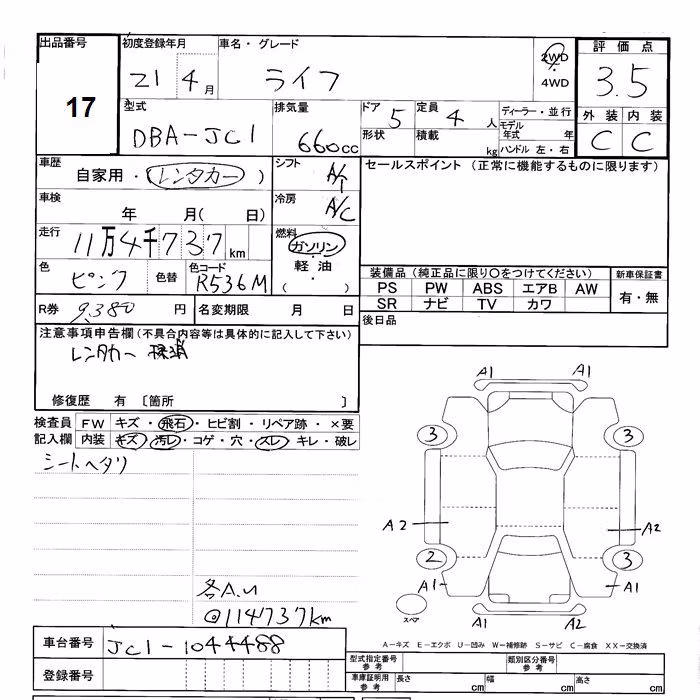 出品番号 17
初度登録年月 21 4月
車名・グレード ライフ
2WD 4WD
評価点 3.5
外装 内装
C C
型式 DBA-JC1
排気量 660cc
ドア 5 形状
定員 4人 積載 kg
ディーラー・並行
モデル年式 年
ハンドル 左・右
車歴 自家用・レンタカー )
シフト A/T
車検 年 月( 日)
冷房 A/C
走行 11万4千737km
燃料 ガソリン・軽油 ( )
色 ピンク 色替
色コード R536M
R券 9,380円
名変期限 月 日
セールスポイント (正常に機能するものに限ります)
装備品 (純正品に限り○をつけてください)
PS PW ABS エアB AW
SR ナビ TV カワ
新車保証書 有・無
後日品
注意事項申告欄 (不具合内容等は具体的に記入して下さい)
レンタカー
修復歴 有 〔箇所 〕
検査員記入欄
FW キズ・飛石・ヒビ割・リペア跡・×要
内装 キズ・汚レ・コゲ・穴・スレ・キレ・破レ
シートヘタリ
各A.U
@114737km
A1 A1
3 3
A2 A2
2 3
A1 A1
スペア
A1 A2
A－キズ E－エクボ U－凹み W－補修跡 S－サビ C－腐食 XX－交換済
車台番号 JC1-1044488
登録番号
型式指定番号 参考
類別区分番号 参考
車庫証明用 参考 長さ cm 幅 cm 高さ cm